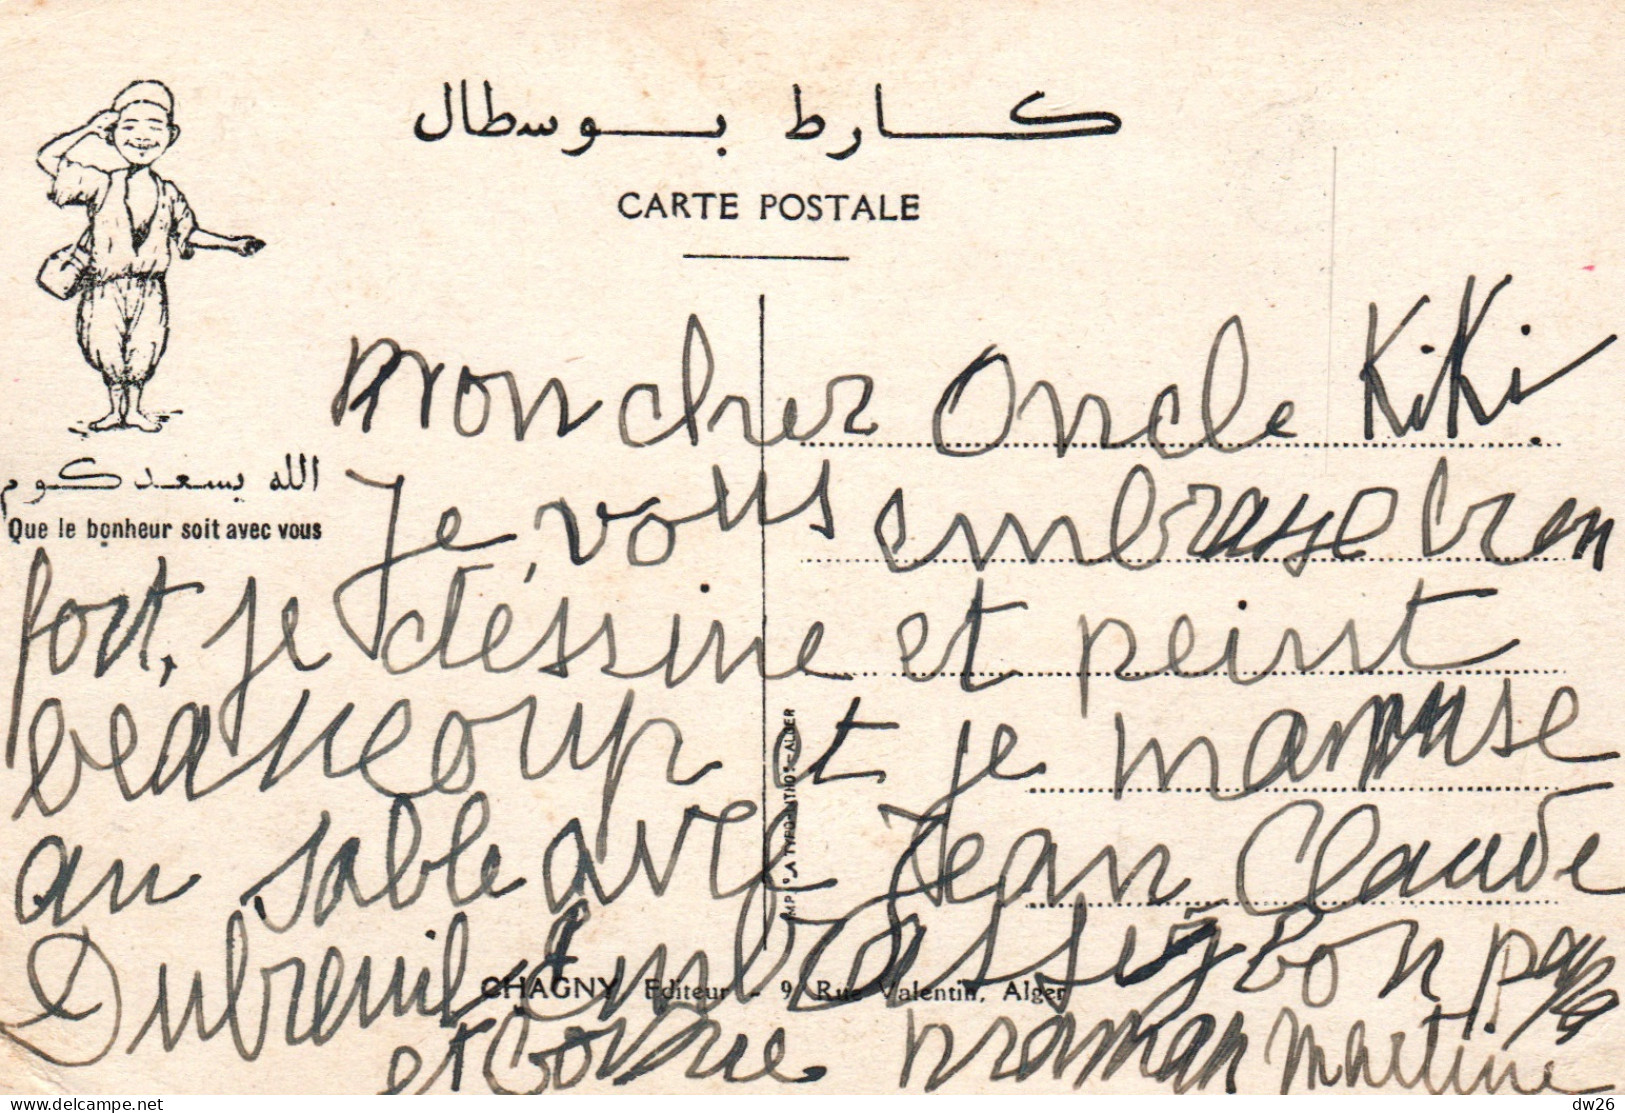 كارط بوسطال
CARTE POSTALE
الله يسعدكوم
Que le bonheur soit avec vous
Mon cher Oncle KiKi.
Je vous embrasse bien
fort, je déssine et peint
beaucoup et je mamuse
au sable avec Jean Claude
Dubreuil Embrassez Bon papa
et Bonne maman Martine
CHAGNY Editeur - 9, Rue Valentin, Alger
IMP. "LA TYPO-LITHO" - ALGER
delcampe.net
dw26